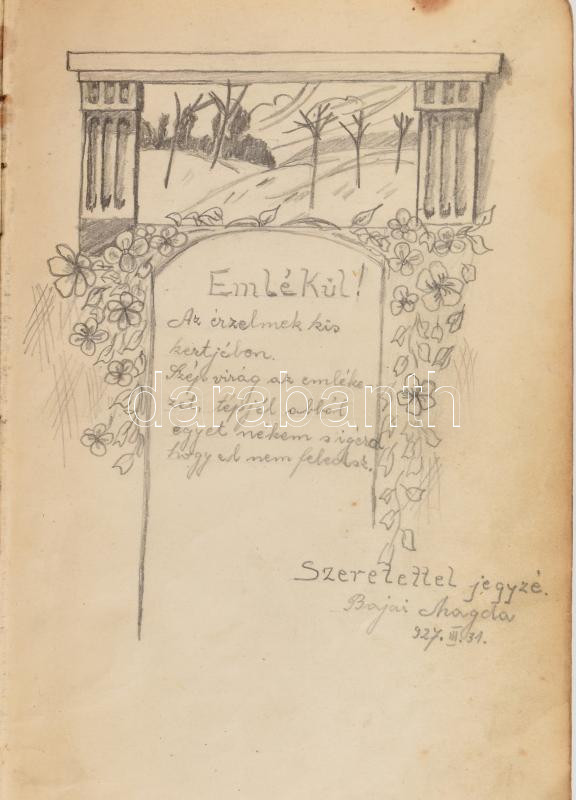 Emlékül!
Az érzelmek kis
kertjében.
Szép virág az emléke
zés, tépjél abból
egyet nekem s igérd
hogy el nem feledsz.
darabanth
Szeretettel jegyzé.
Bajai Magda
927. III. 31.